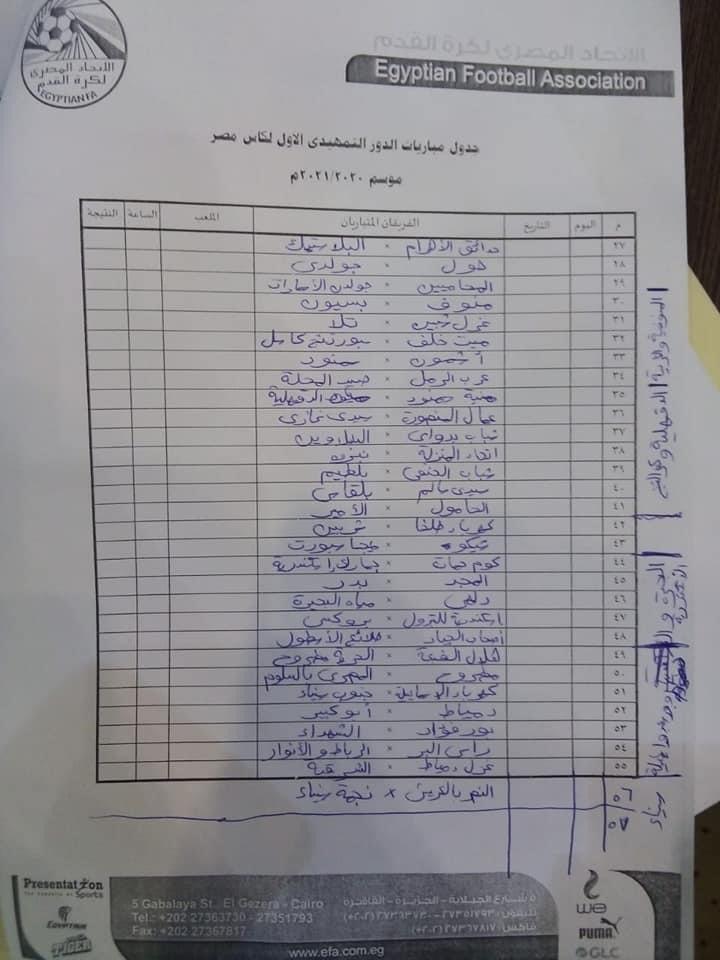 الاتحاد المصرى
لكرة القدم
EGYPTIAN FA
الاتحاد المصرى لكرة القدم
Egyptian Football Association
جدول مباريات الدور التمهيدى الاول لكاس مصر
موسم ٢٠٢١/٢٠٢٠م
م اليوم التاريخ الفريقان المتباريان الملعب الساعة النتيجة
٢٧ حدائق الأهرام × البلاستيك
٢٨ هول × جولدى
٢٩ المحاميين × جولدن الأمارات
٣٠ منوف × بسيون
٣١ غزل شبين × تلا
٣٢ ميت خلف × سبورتنج كاسل
٣٣ أشمون × سمنود
٣٤ عرب الرمل × صيد المحلة
٣٥ منية سمنود × الدقهلية
٣٦ عمال المنصورة × سيدى غازى
٣٧ شباب بدواى ×
٣٨ اتحاد المنزلة × نبروه
٣٩ شباب × بلطيم
٤٠ سيدى سالم × بلقاس
٤١ الحامول ×
٤٢ كهرباء طلخا × شربين
٤٣ × سبورت
٤٤ كوم حمادة × جمارك اسكندرية
٤٥ المجد × بدر
٤٦ دلهى × مياه البحيرة
٤٧ اسكندرية للبترول × بروكسى
٤٨ أصحاب الجياد × طلائع الأسطول
٤٩ هلال الضبعة × الحرية مطروح
٥٠ مطروح × المصرى بالسلوم
٥١ كهرباء الاسماعيلية × جنوب سيناء
٥٢ دمياط × أبو كبير
٥٣ بور فؤاد × الشهداء
٥٤ راس البر × الرباط و الأنوار
٥٥ غزل دمياط × الشرقية
٥٦ النصر بالعريش × نجمة سيناء
٥٧
Presentation
Sports
EGYPTIAN
TIGER
5 Gabalaya St., El Gezera - Cairo
Tel.: +202 27363730 - 27351793
Fax: +202 27367817
٥ شـارع الجبلاية - الجزيرة - القاهرة
تليفون: ٢٧٣٥١٧٩٣ - ٢٧٣٦٣٧٣٠ (٢٠٢+)
فاكس: ٢٧٣٦٧٨١٧ (٢٠٢+)
www.efa.com.eg
we
PUMA
GLC